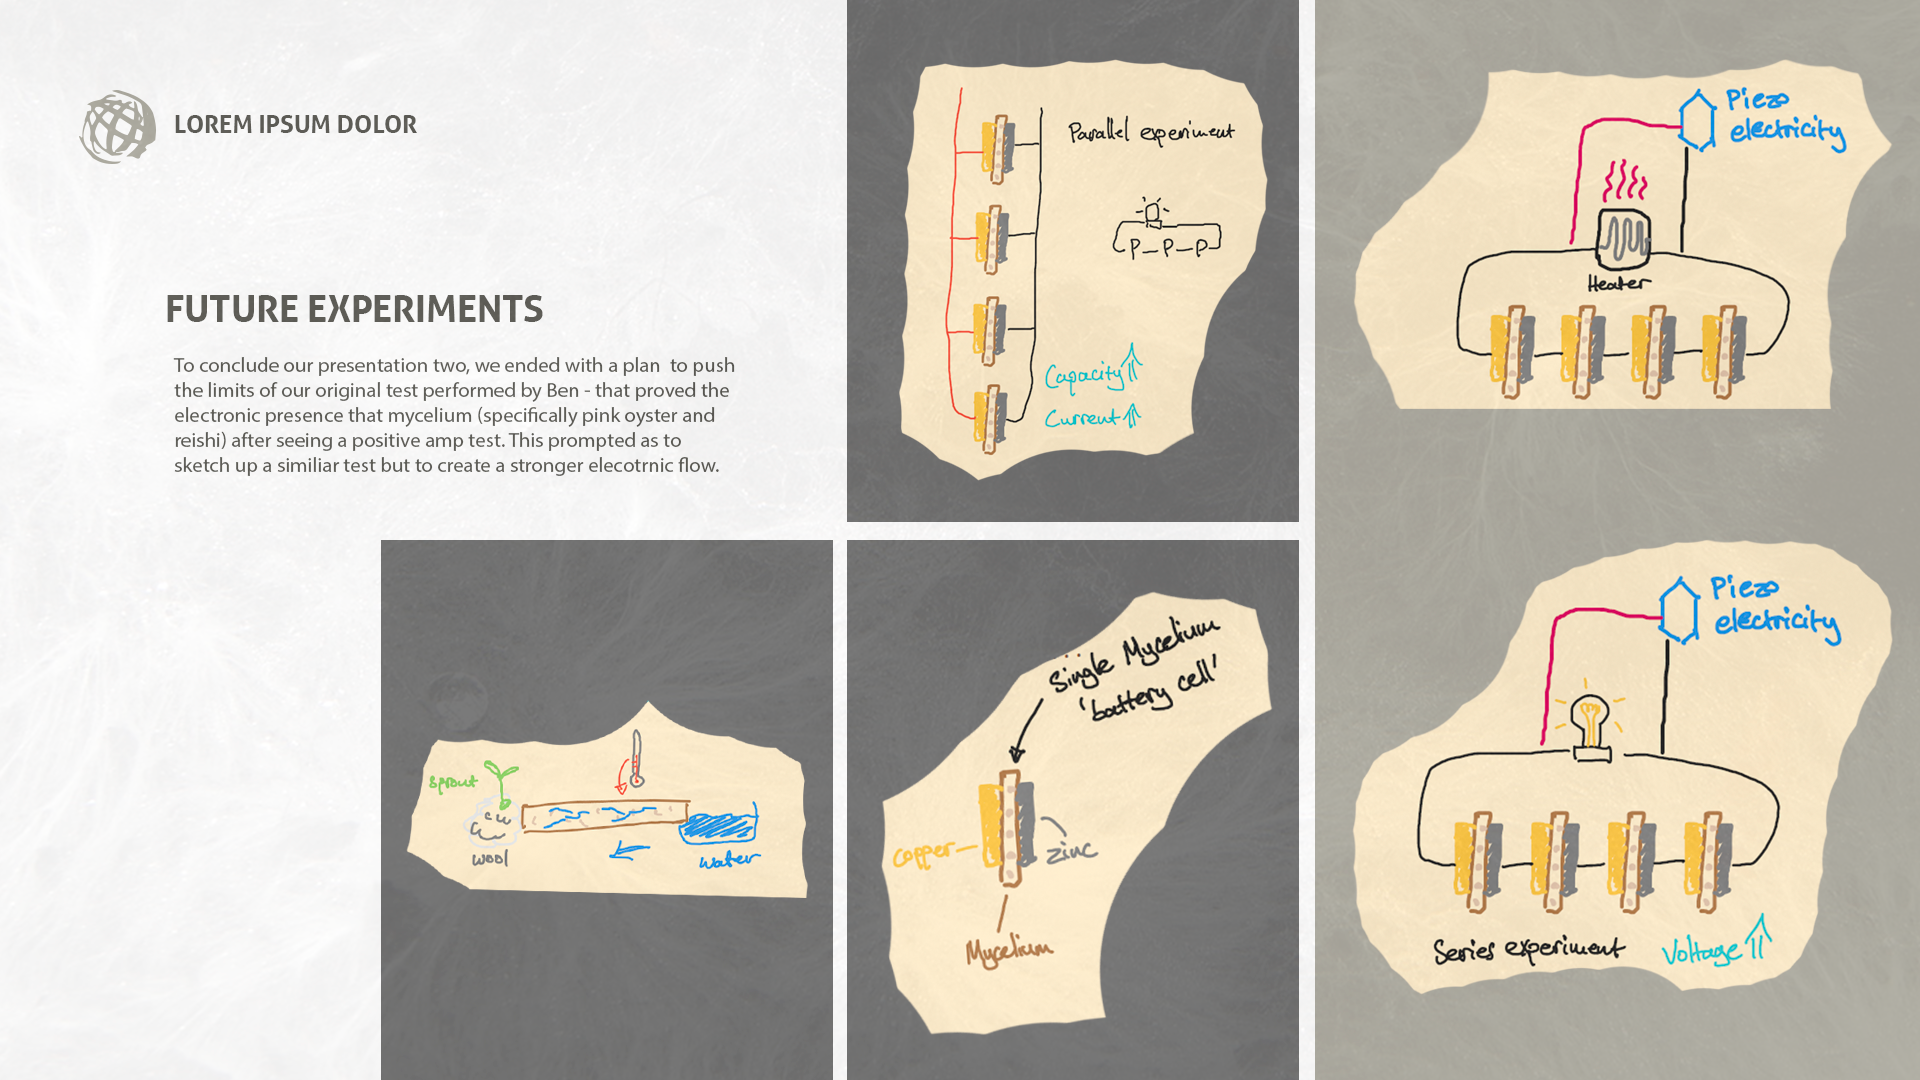 LOREM IPSUM DOLOR
FUTURE EXPERIMENTS
To conclude our presentation two, we ended with a plan  to push
the limits of our original test performed by Ben - that proved the
electronic presence that mycelium (specifically pink oyster and
reishi) after seeing a positive amp test. This prompted as to
sketch up a similiar test but to create a stronger elecotrnic flow.
Parallel experiment
P-P-P
Capacity
Current
Piezo
electricity
Heater
Sprout
wool
water
Single Mycelium
'battery cell'
copper
zinc
Mycelium
Piezo
electricity
Series experiment
Voltage